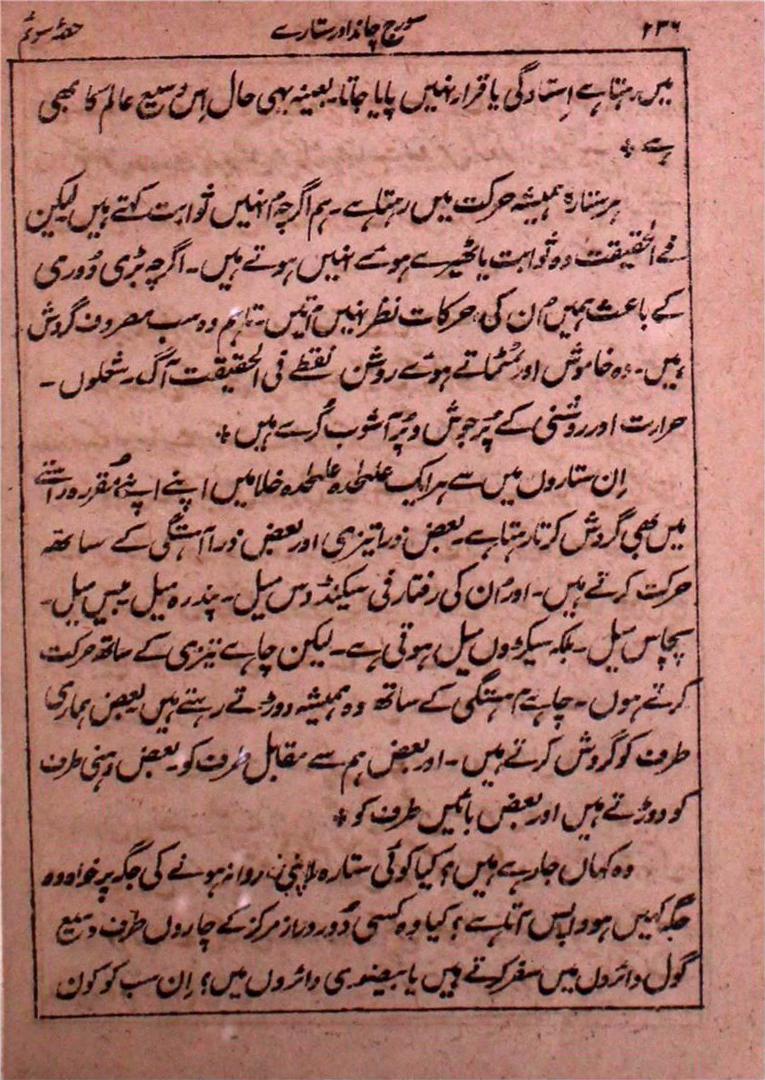 ۲۳۶ سورج چاند اور ستارے حصۂ سوئم
میں رہتا ہے اِستادگی یا قرار نہیں پایا جاتا۔ بعینہ یہی حال اِس وسیع عالم کا بھی
ہے ٭
ہر ستارہ ہمیشہ حرکت میں رہتا ہے۔ ہم اگرچہ اُنہیں ثوابت کہتے ہیں لیکن
فے الحقیقت وہ ثوابت یا ٹھیرے ہوئے نہیں ہوتے ہیں۔ اگرچہ بڑی دُوری
کے باعث ہمیں اُن کی حرکات نظر نہیں آتیں۔ تاہم وہ سب مصروف گردش
ہیں۔ وہ خاموش اور ٹمٹماتے ہوئے روشن نقطے فی الحقیقت آگ۔ شعلوں۔
حرارت اور روشنی کے پُرجوش و پُرآشوب کُرے ہیں ٭
اِن ستاروں میں سے ہر ایک علیٰحدہ علیٰحدہ خلا میں اپنے اپنے مُقررہ راستے
میں بھی گردش کرتا رہتا ہے۔ بعض ذرا تیزی اور بعض ذرا آہستگی کے ساتھ
حرکت کرتے ہیں۔ اور اُن کی رفتار فی سیکنڈ دس میل۔ پندرہ میل۔ بیس میل۔
پچاس میل۔ بلکہ سیکڑوں میل ہوتی ہے۔ لیکن چاہے تیزی کے ساتھ حرکت
کرتے ہوں۔ چاہے آہستگی کے ساتھ وہ ہمیشہ دوڑتے رہتے ہیں بعض ہماری
طرف کو گردش کرتے ہیں۔ اور بعض ہم سے مقابل طرف کو۔ بعض دہنی طرف
کو دوڑتے ہیں اور بعض بائیں طرف کو ٭
وہ کہاں جا رہے ہیں؟ کیا کوئی ستارہ اپنی روانہ ہونے کی جگہ پر خواہ وہ
جگہ کہیں ہو واپس آتا ہے؟ کیا وہ کسی دُور دراز مرکز کے چاروں طرف وسیع
گول دائروں میں سفر کرتے ہیں یا بیضوی دائروں میں؟ اِن سب کو کون